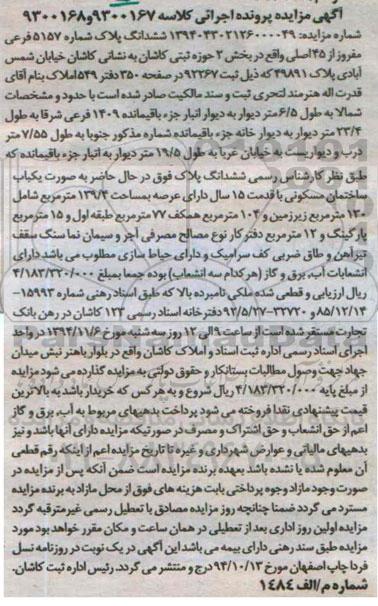 آگهی مزایده پرونده اجرائی کلاسه ۹۳۰۰۱۶۷و۹۳۰۰۱۶۸
شماره مزایده: ۱۳۹۴۰۴۳۰۲۱۲۶۰۰۰۰۴۹ ششدانگ پلاک شماره ۵۱۵۷ فرعی
مفروز از ۴۵اصلی واقع در بخش ۲ حوزه ثبتی کاشان به نشانی کاشان خیابان شمس
آبادی پلاک ۴۹۸۹۱ که ذیل ثبت ۹۲۲۶۷ در صفحه ۳۵۰ دفتر ۵۴۹املاک بنام آقای
قدرت اله هنرمند لتحری ثبت و سند مالکیت صادر شده است با حدود و مشخصات
شمالا به طول ۶/۵متر دیوار به دیوار انبار جزء باقیمانده ۱۴۰۹ فرعی شرقا به طول
۲۳/۴ متر دیوار به دیوار خانه جزء باقیمانده شماره مذکور جنوبا به طول ۷/۵۵ متر
درب و دیواریست به خیابان غربا به طول ۱۹/۵ متر دیوار به انبار جزء باقیمانده که
طبق نظر کارشناس رسمی ششدانگ پلاک فوق در حال حاضر به صورت یکباب
ساختمان مسکونی با قدمت ۱۵ سال دارای عرصه بمساحت ۱۳۹/۴ مترمربع شامل
۱۳۰ مترمربع زیرزمین و ۱۰۴ مترمربع همکف ۷۷ مترمربع طبقه اول و ۱۵ مترمربع
پارکینگ و ۱۲ مترمربع دفترکار نوع مصالح مصرفی آجر و سیمان نما سنگ سقف
تیرآهن و طاق ضربی کف سرامیک و دارای حیاط سازی مطلوب می باشد دارای
انشعابات آب، برق و گاز (هرکدام سه انشعاب) بوده جمعا بمبلغ ۴/۱۸۳/۳۲۰/۰۰۰
ریال ارزیابی و قطعی شده ملکی نامبرده بالا که طبق اسناد رهنی شماره ۱۵۹۹۳-
۸۵/۱۲/۱۴ و ۳۳۷۲۰-۹۲/۵/۲۷ دفترخانه اسناد رسمی ۱۲۳ کاشان در رهن بانک
تجارت مستقر شده است از ساعت ۹ الی ۱۲ روز سه شنبه مورخ ۱۳۹۴/۱۱/۶ در واحد
اجرای اسناد رسمی اداره ثبت اسناد و املاک کاشان واقع در بلوار باهنر نبش میدان
جهاد جهت وصول مطالبات بستانکار و حقوق دولتی به مزایده گذارده می شود مزایده
از مبلغ پایه ۴/۱۸۳/۳۲۰/۰۰۰ ریال شروع و به هر کس که خریدار باشد به بالاترین
قیمت پیشنهادی نقدا فروخته می شود پرداخت بدهیهای مربوط به آب، برق و گاز
اعم از حق انشعاب و حق اشتراک و مصرف در صورتیکه مزایده دارای آنها باشد و نیز
بدهیهای مالیاتی و عوارض شهرداری و غیره تا تاریخ مزایده اعم از اینکه رقم قطعی
آن معلوم شده یا نشده باشد بعهده برنده مزایده است ضمن آنکه پس از مزایده در
صورت وجود مازاد وجوه پرداختی بابت هزینه های فوق از محل مازاد به برنده مزایده
مسترد می گردد ضمنا چنانچه روز مزایده مصادق با تعطیل رسمی غیرمترقبه گردد
مزایده اولین روز اداری بعد از تعطیلی در همان ساعت و مکان مقرر خواهد بود مورد
مزایده طبق سند رهنی دارای بیمه می باشد این آگهی در یک نوبت در روزنامه نسل
فردا چاپ اصفهان مورخ ۹۴/۱۰/۱۳ درج و منتشر می گردد. رئیس اداره ثبت کاشان.
شماره م/الف ۱۴۸۴